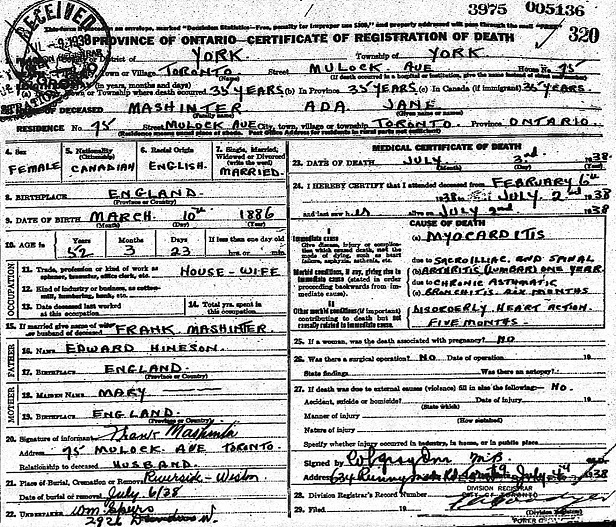 3975 005136
RECEIVED
320
PROVINCE OF ONTARIO—CERTIFICATE OF REGISTRATION OF DEATH
District of YORK Township of YORK
Town or Village TORONTO Street MULOCK AVE House No. 75
(If death occurred in a hospital or institution, give the name instead of street and number)
(in years, months and days) Town or Township where death occurred 35 YEARS (b) In Province 35 YEARS (c) In Canada (if immigrant) 35 YEARS
DECEASED MASHINTER ADA JANE
(Family name) (Given name or names)
RESIDENCE No. 75 Street MULOCK AVE City, town, village or township TORONTO Province ONTARIO.
(Residence means usual place of abode. Post Office Address for residents in rural parts not sufficient)
4. Sex 5. Nationality (Citizenship) 6. Racial Origin 7. Single, Married, Widowed or Divorced (write the word)
FEMALE CANADIAN ENGLISH. MARRIED.
8. BIRTHPLACE ENGLAND.
(Province or Country)
9. DATE OF BIRTH MARCH 10th 1886
(Month) (Day) (Year)
10. AGE in Years Months Days If less than one day old
52 3 23 hrs. or min.
OCCUPATION
11. Trade, profession or kind of work as spinner, teamster, office clerk, etc. HOUSE-WIFE
12. Kind of industry or business, as cotton-mill, lumbering, bank, etc.
13. Date deceased last worked at this occupation 14. Total yrs. spent in this occupation
15. If married give name of wife or husband of deceased FRANK MASHINTER.
FATHER
16. Name EDWARD HINESON.
17. BIRTHPLACE ENGLAND
(Province or Country)
MOTHER
18. Maiden Name MARY
19. BIRTHPLACE ENGLAND.
(Province or Country)
20. Signature of informant Frank Mashinter
Address 75 MULOCK AVE TORONTO.
Relationship to deceased HUSBAND.
21. Place of Burial, Cremation or Removal Riverside - Weston
Date of burial or removal July 6/38
22. UNDERTAKER Wm Speers
2926 Dundas W.
MEDICAL CERTIFICATE OF DEATH
23. DATE OF DEATH JULY 3rd 1938
(Month) (Day) (Year)
24. I HEREBY CERTIFY that I attended deceased from FEBRUARY 6th
1938 to JULY 2nd 1938
and last saw her alive on JULY 2nd 1938
CAUSE OF DEATH
I
Immediate cause (a) MYOCARDITIS
Give disease, injury or complication which caused death, not the mode of dying, such as heart failure, asphyxia, asthenia, etc.
due to SACROILIAC AND SPINAL
Morbid conditions, if any, giving rise to immediate cause (stated in order proceeding backwards from immediate cause).
(b) ARTHRITIS (LUMBAR) ONE YEAR
due to CHRONIC ASTHMATIC
(c) BRONCHITIS. SIX MONTHS
II
Other morbid conditions (if important) contributing to death but not causally related to immediate cause.
DISORDERLY HEART ACTION.
FIVE MONTHS.
25. If a woman, was the death associated with pregnancy? NO
26. Was there a surgical operation? NO Date of operation 19
State findings Was there an autopsy?
27. If death was due to external causes (violence) fill in also the following— NO.
Accident, suicide or homicide? Date of injury 19
(State which)
Manner of injury
(How sustained)
Nature of injury
Specify whether injury occurred in industry, in home, or in public place
Signed by M.D.
Address Toronto July 4th 1938
28. Division Registrar's Record Number
DIVISION REGISTRAR
CITY OF TORONTO
29. Filed 19
(Division Registrar)